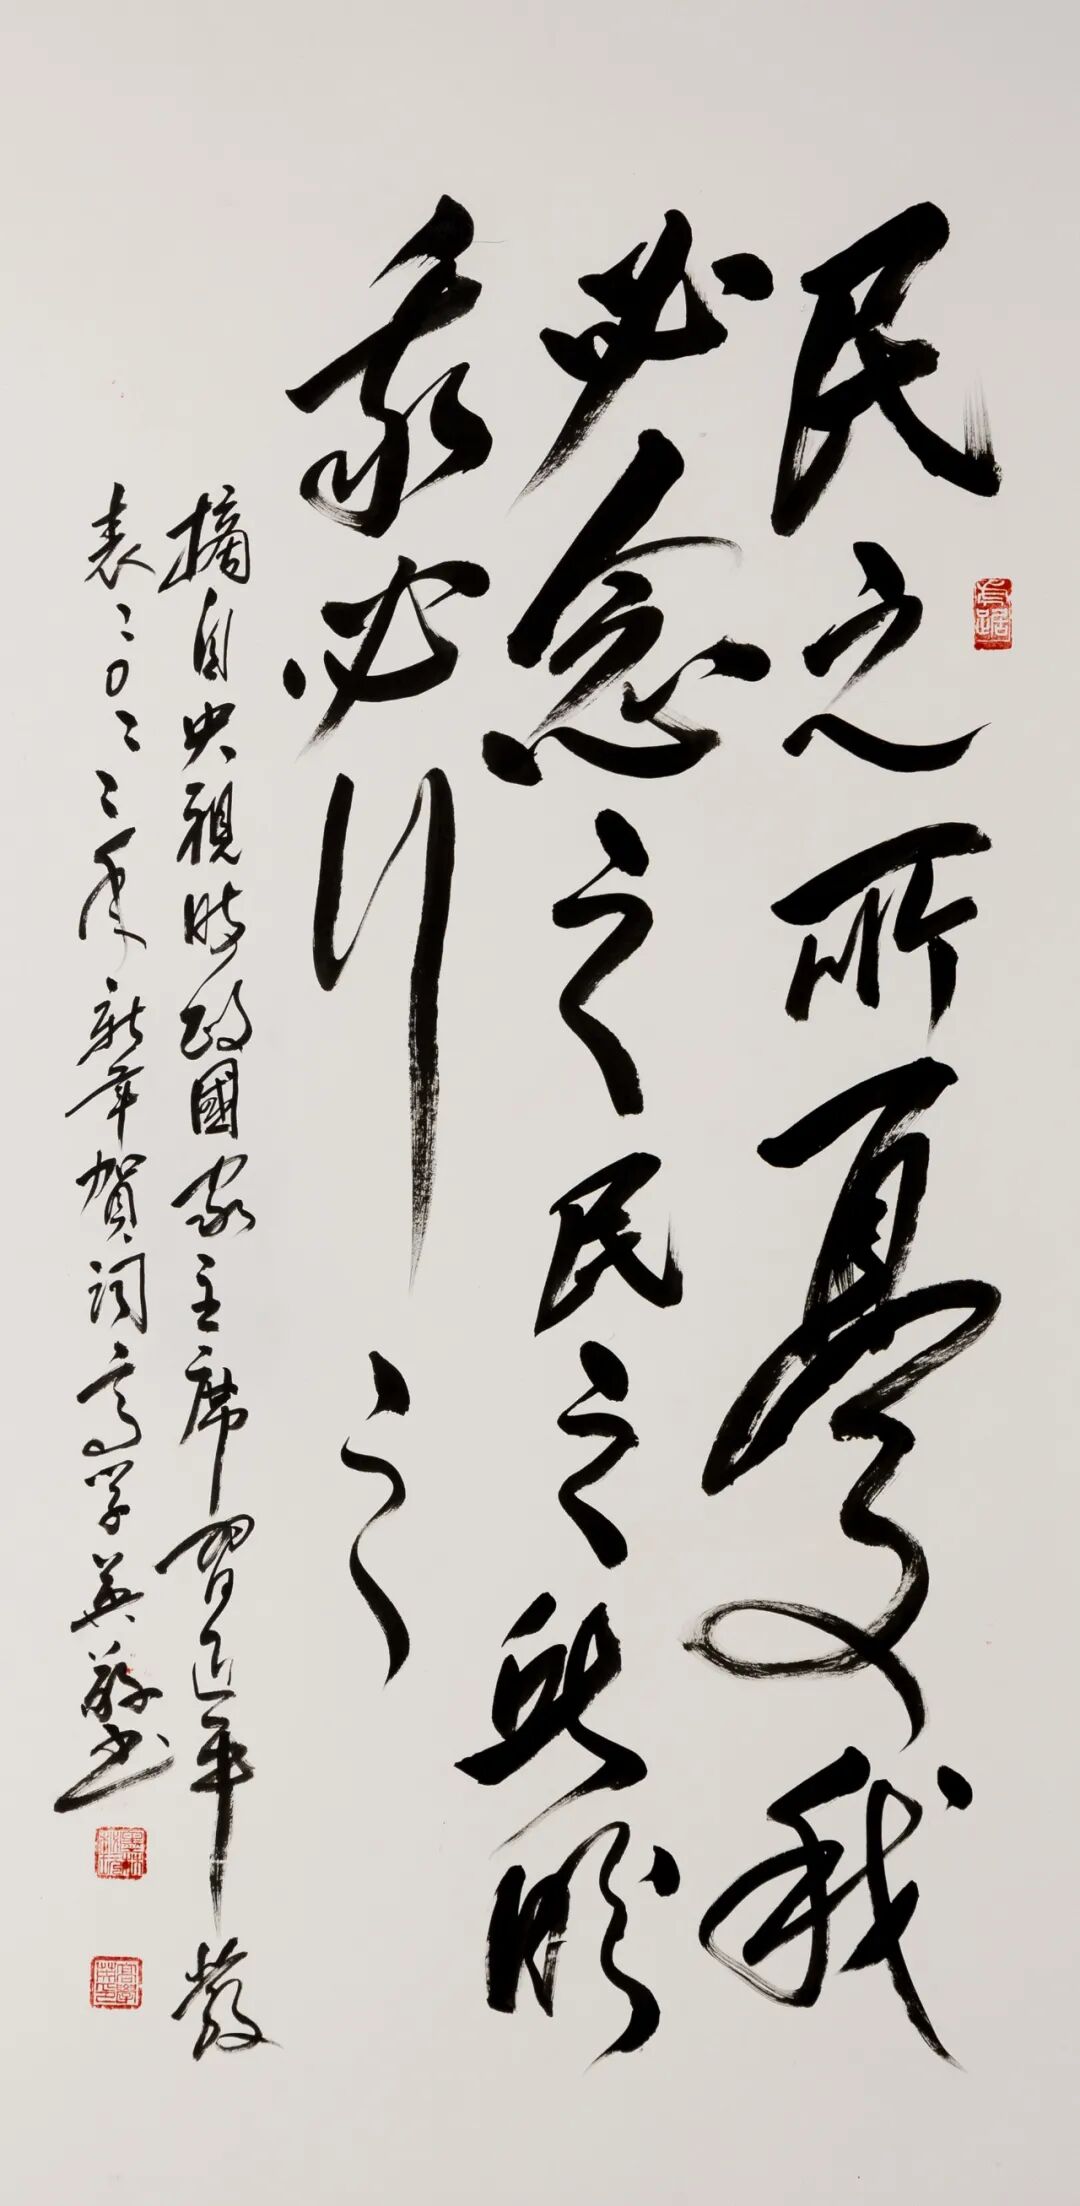 民之所憂我
必念之民之所盼
我必行之
摘自央視時政國家主席習近平發
表二〇二二年新年賀詞高学英敬书